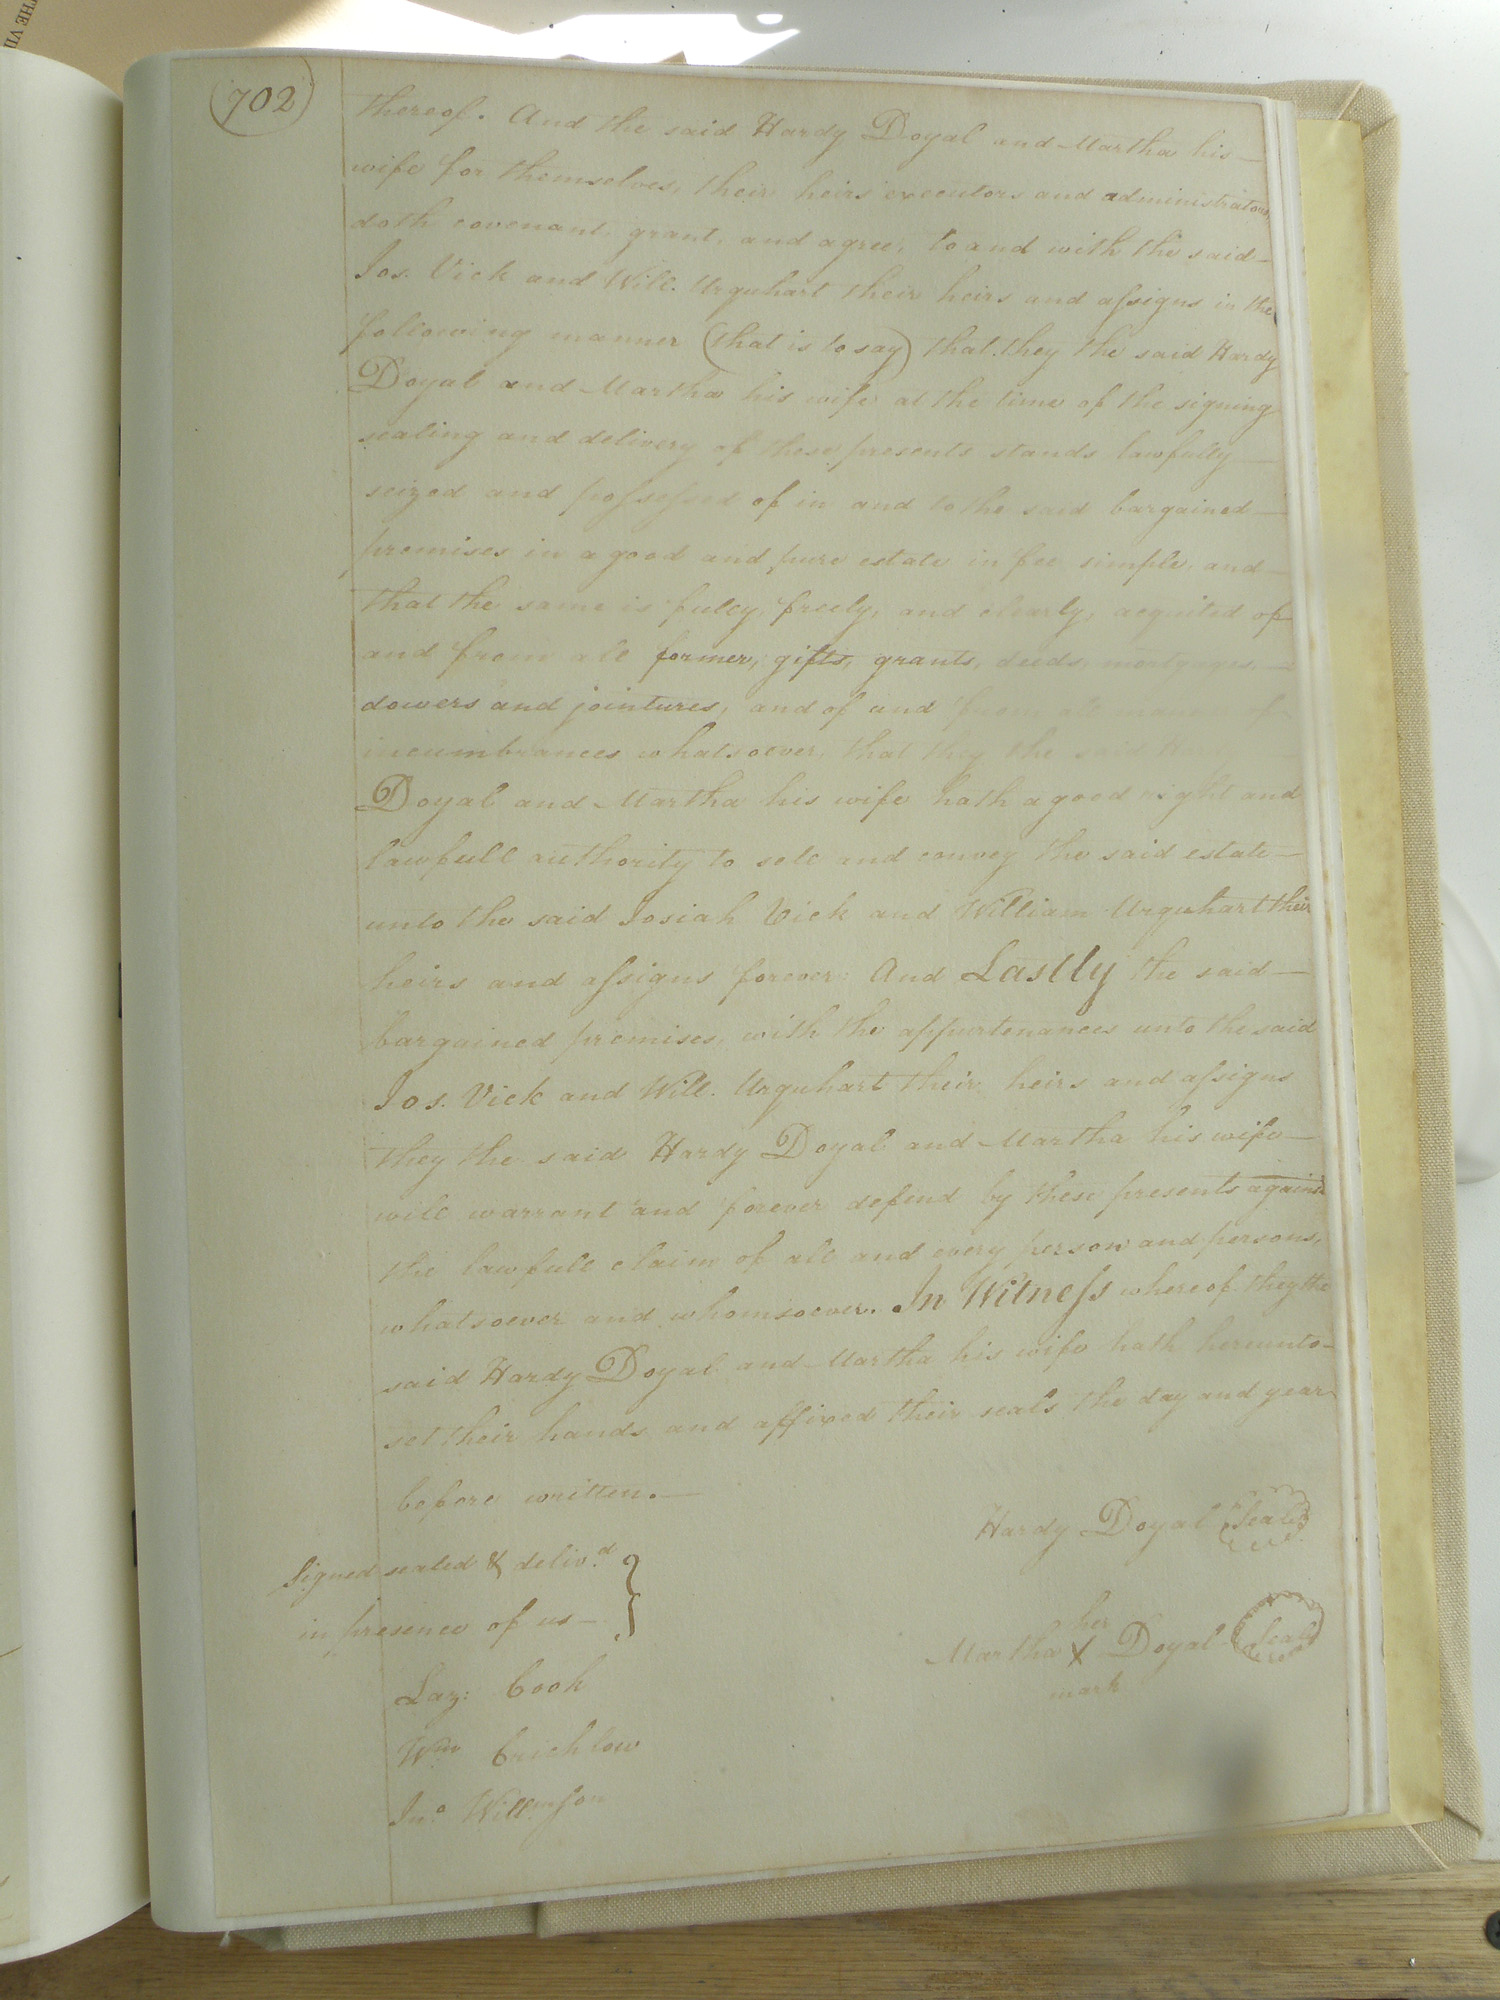 THE VII
702
thereof. And the said Hardy Doyal and Martha his
wife for themselves, their heirs executors and administrators
doth covenant, grant, and agree, to and with the said
Jos. Vick and Will. Urquhart their heirs and assigns in the
following manner (that is to say) that they the said Hardy
Doyal and Martha his wife at the time of the signing
sealing and delivery of these presents stands lawfully
seized and possessed of in and to the said bargained
premises in a good and pure estate in fee simple, and
that the same is fully, freely, and clearly, acquited of
and from all former, gifts, grants, deeds, mortgages,
dowers and jointures, and of and from all manner of
incumbrances whatsoever, that they the said
Doyal and Martha his wife hath a good right and
lawfull authority to sell and convey the said estate
unto the said Josiah Vick and William Urquhart their
heirs and assigns forever: And Lastly the said
bargained premises, with the appurtenances unto the said
Jos. Vick and Will. Urquhart their heirs and assigns
they the said Hardy Doyal and Martha his wife
will warrant and forever defend by these presents against
the lawfull claim of all and every person and persons,
whatsoever and whomsoever. In Witness whereof they the
said Hardy Doyal and Martha his wife hath hereunto
set their hands and affixed their seals the day and year
before written.
Hardy Doyal Seal
Signed sealed & deliv.d
in presence of us
her
Martha X Doyal Seal
mark
Laz: Cook
Wm Crichlow
Jno. Willmson